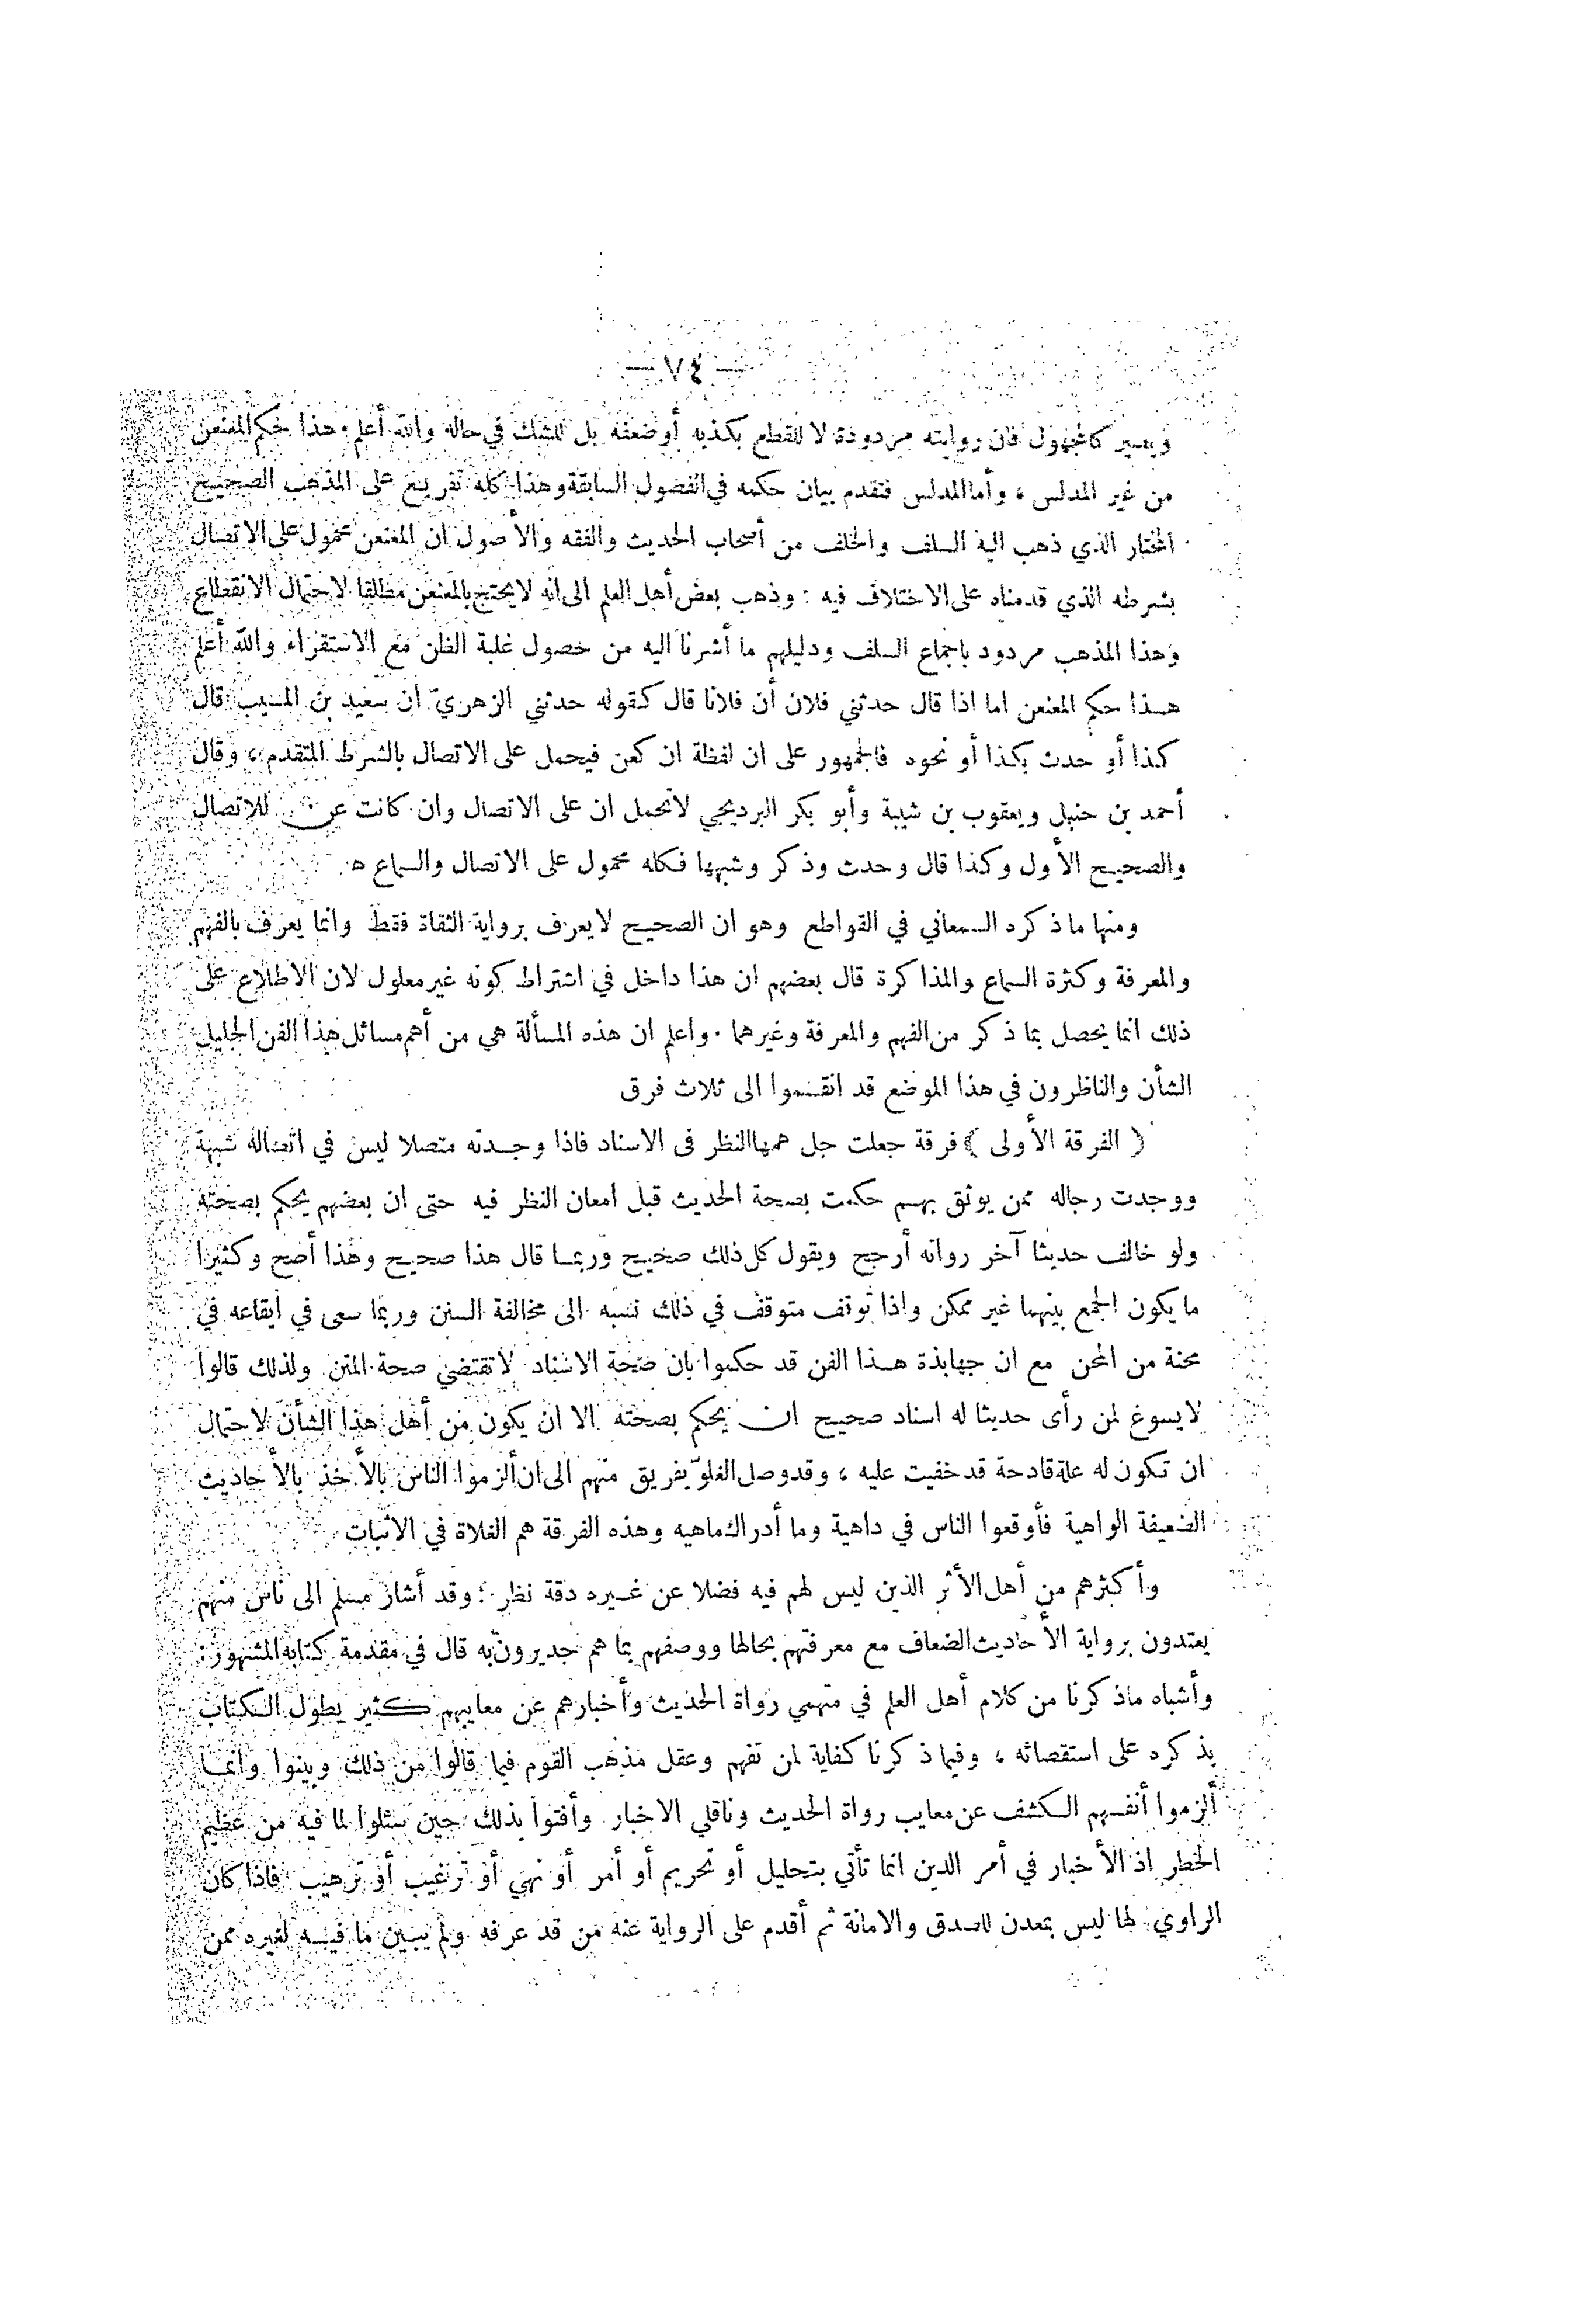 — ٧٤ —
ويصير كالمجهول فان روايته مردودة لا للقطع بكذبه أو ضعفه بل للشك في حاله والله أعلم . هذا حكم المعنعن
من غير المدلس ، وأما المدلس فتقدم بيان حكمه في الفصول السابقة وهذا كله تفريع على المذهب الصحيح
المختار الذي ذهب اليه السلف والخلف من أصحاب الحديث والفقه والأصول ان المعنعن محمول على الاتصال
بشرطه الذي قدمناه على الاختلاف فيه : وذهب بعض أهل العلم الى انه لا يحتج بالمعنعن مطلقا لاحتمال الانقطاع
وهذا المذهب مردود باجماع السلف ودليلهم ما أشرنا اليه من حصول غلبة الظن مع الاستقراء والله أعلم
هذا حكم المعنعن اما اذا قال حدثني فلان أن فلانا قال كقوله حدثني الزهريّ ان سعيد بن المسيب قال
كذا أو حدث بكذا أو نحوه فالجمهور على ان لفظة ان كعن فيحمل على الاتصال بالشرط المتقدم ، وقال
أحمد بن حنبل ويعقوب بن شيبة وأبو بكر البرديجي لا تحمل ان على الاتصال وان كانت عن للاتصال
والصحيح الأول وكذا قال وحدث وذكر وشبهها فكله محمول على الاتصال والسماع ه
ومنها ما ذكره السمعاني في القواطع وهو ان الصحيح لا يعرف برواية الثقاة فقط وانما يعرف بالفهم
والمعرفة وكثرة السماع والمذاكرة قال بعضهم ان هذا داخل في اشتراط كونه غير معلول لان الاطلاع على
ذلك انما يحصل بما ذكر من الفهم والمعرفة وغيرهما . واعلم ان هذه المسألة هي من أهم مسائل هذا الفن الجليل
الشأن والناظرون في هذا الموضع قد انقسموا الى ثلاث فرق
﴿ الفرقة الأولى ﴾ فرقة جعلت جل همها النظر فى الاسناد فاذا وجدته متصلا ليس في اتصاله شبهة
ووجدت رجاله ممن يوثق بهم حكمت بصحة الحديث قبل امعان النظر فيه حتى ان بعضهم يحكم بصحته
ولو خالف حديثا آخر رواته أرجح ويقول كل ذلك صحيح وربما قال هذا صحيح وهذا أصح وكثيرا
ما يكون الجمع بينهما غير ممكن واذا توقف متوقف في ذلك نسبه الى مخالفة السنن وربما سعى في ايقاعه في
محنة من المحن مع ان جهابذة هذا الفن قد حكموا بان صحة الاسناد لا تقتضي صحة المتن ولذلك قالوا
لا يسوغ لمن رأى حديثا له اسناد صحيح ان يحكم بصحته الا ان يكون من أهل هذا الشأن لاحتمال
ان تكون له علة قادحة قد خفيت عليه ، وقد وصل الغلوّ بفريق منهم الى ان ألزموا الناس بالأخذ بالأحاديث
الضعيفة الواهية فأوقعوا الناس في داهية وما أدراك ماهيه وهذه الفرقة هم الغلاة في الاثبات
وأكثرهم من أهل الأثر الذين ليس لهم فيه فضلا عن غيره دقة نظر : وقد أشار مسلم الى ناس منهم
يعتدون برواية الأحاديث الضعاف مع معرفتهم بحالها ووصفهم بما هم جديرون به قال في مقدمة كتابه المشهور :
وأشباه ماذكرنا من كلام أهل العلم في متهمي رواة الحديث وأخبارهم عن معايبهم كثير يطول الكتاب
بذكره على استقصائه ، وفيما ذكرنا كفاية لمن تفهم وعقل مذهب القوم فيما قالوا من ذلك وبينوا وانما
ألزموا أنفسهم الكشف عن معايب رواة الحديث وناقلي الاخبار وأفتوا بذلك حين سئلوا لما فيه من عظيم
الخطر اذ الأخبار في أمر الدين انما تأتي بتحليل أو تحريم أو أمر أو نهي أو ترغيب أو ترهيب فاذا كان
الراوي لها ليس بمعدن للصدق والامانة ثم أقدم على الرواية عنه من قد عرفه ولم يبين ما فيه لغيره ممن